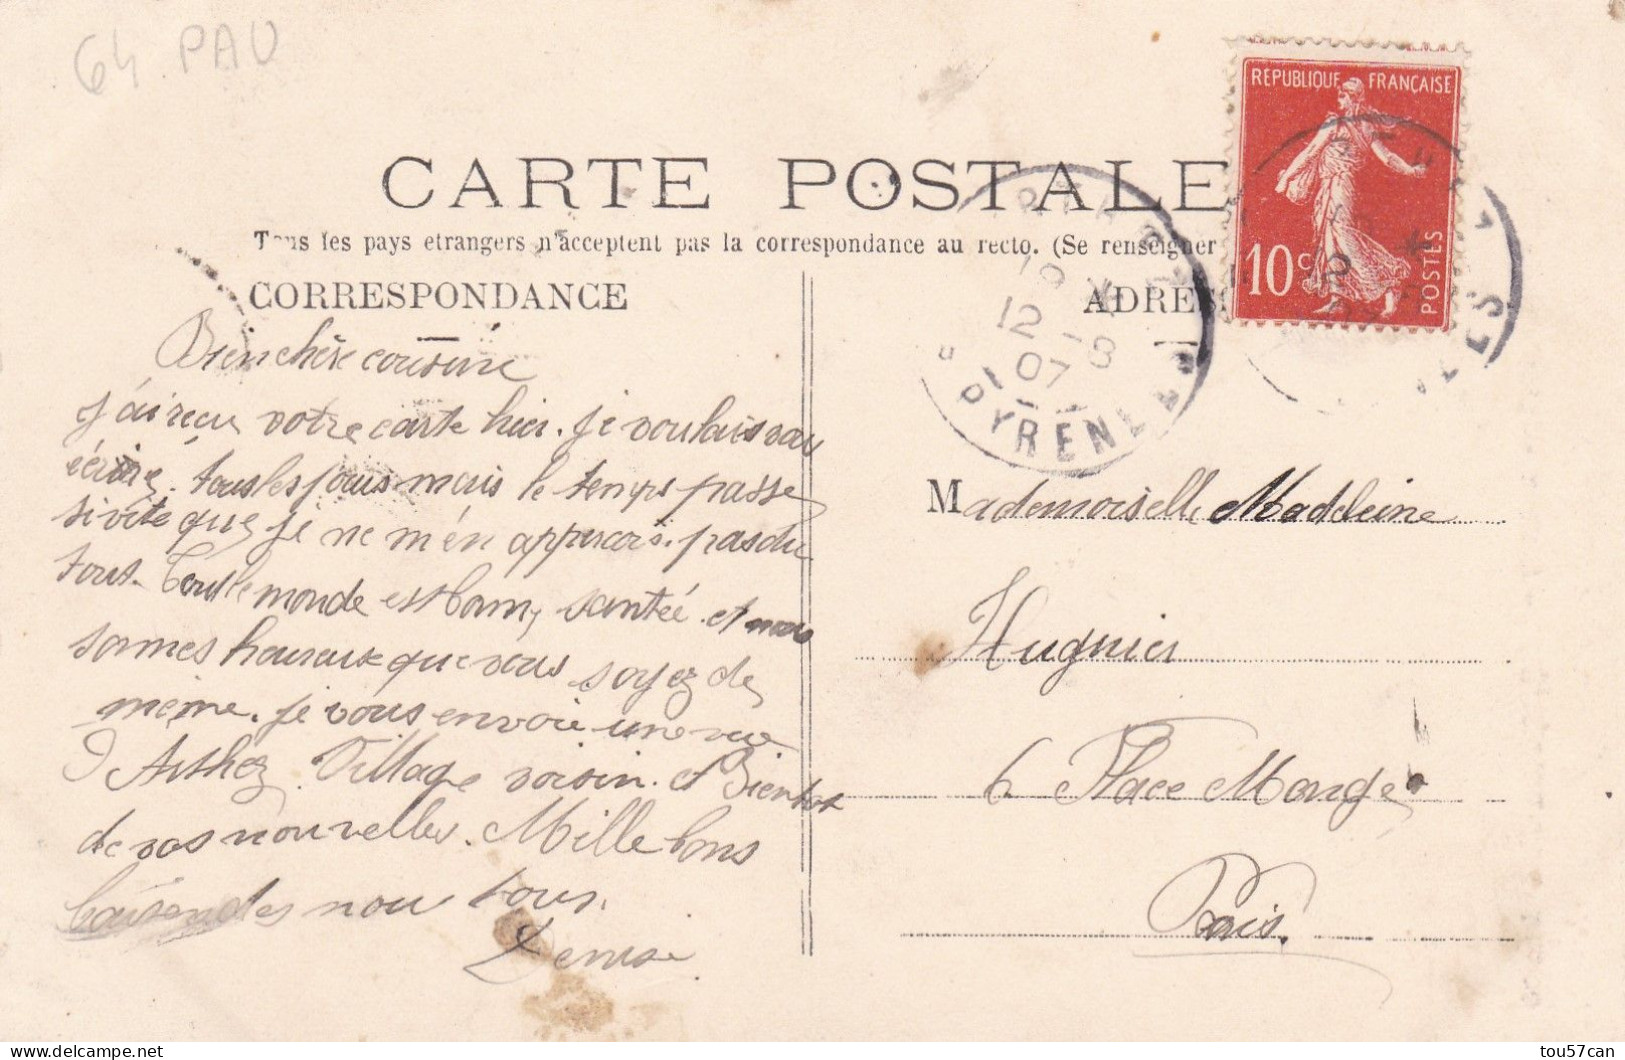 64 PAU
CARTE POSTALE
Tous les pays etrangers n'acceptent pas la correspondance au recto. (Se renseigner
CORRESPONDANCE
Bien chère cousine
J'ai reçu votre carte hier. Je voulais vou
écrire. tous les jours mais le temps passe
si vite que je ne m'en appercois. pas du
tout. Tout le monde est bonn, santée. et nous
sommes heureux que vous soyez de
même. Je vous envoie une vue
d Arthez. Village voisin. et Bientot
de vos nouvelles. Mille bons
baisers des nou tous.
Denise
REPUBLIQUE FRANÇAISE
10 c
POSTES
ADRES
12 -8
07
PYRENE
Mademoiselle Madeleine
Hugnier
6 Place Monge
Paris.
tou57can